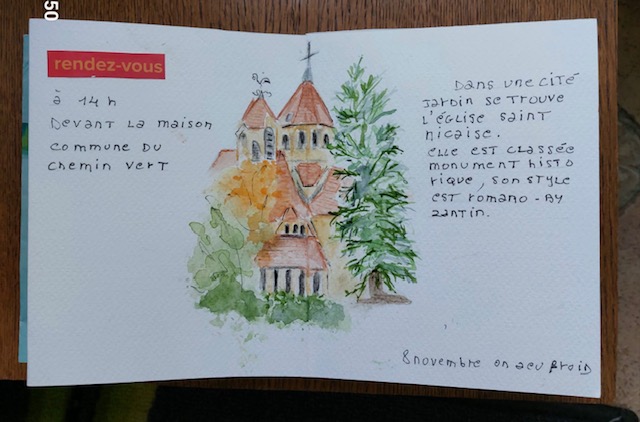 50
rendez-vous
à 14h
Devant La maison
commune du
chemin vert
Dans une cité
jardin se trouve
l'église saint
nicaise.
elle est classée
monument histo
rique, son style
est romano-By
zantin.
8 novembre on a eu froid